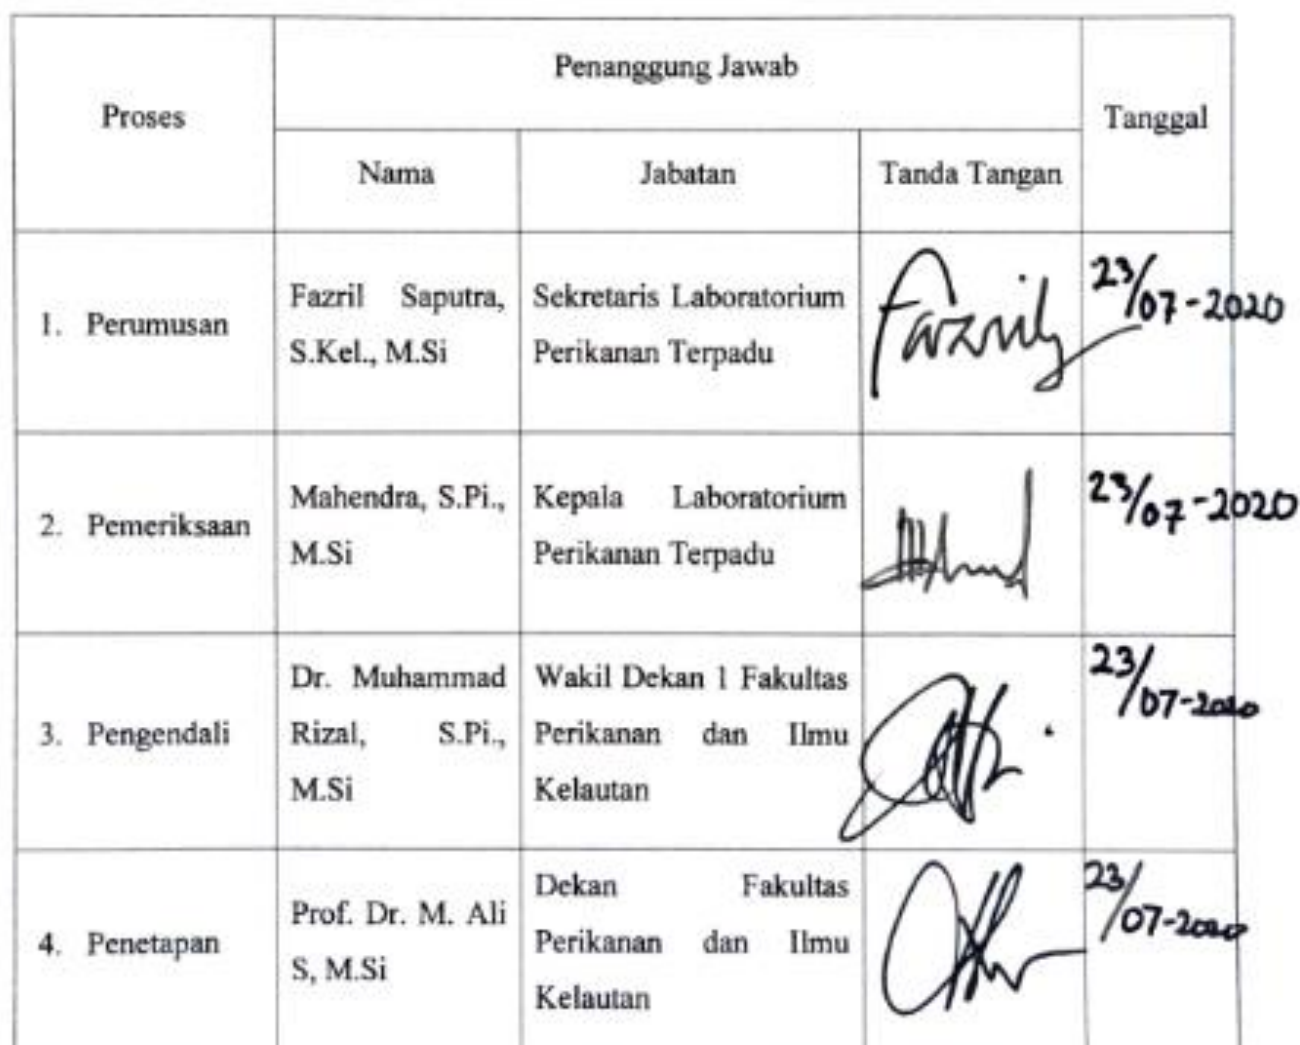 Proses
Penanggung Jawab
Tanggal
Nama
Jabatan
Tanda Tangan
1. Perumusan
Fazril Saputra,
S.Kel., M.Si
Sekretaris Laboratorium
Perikanan Terpadu
Fazril
23/07-2020
2. Pemeriksaan
Mahendra, S.Pi.,
M.Si
Kepala Laboratorium
Perikanan Terpadu
23/07-2020
3. Pengendali
Dr. Muhammad
Rizal, S.Pi.,
M.Si
Wakil Dekan 1 Fakultas
Perikanan dan Ilmu
Kelautan
23/07-2020
4. Penetapan
Prof. Dr. M. Ali
S, M.Si
Dekan Fakultas
Perikanan dan Ilmu
Kelautan
23/07-2020